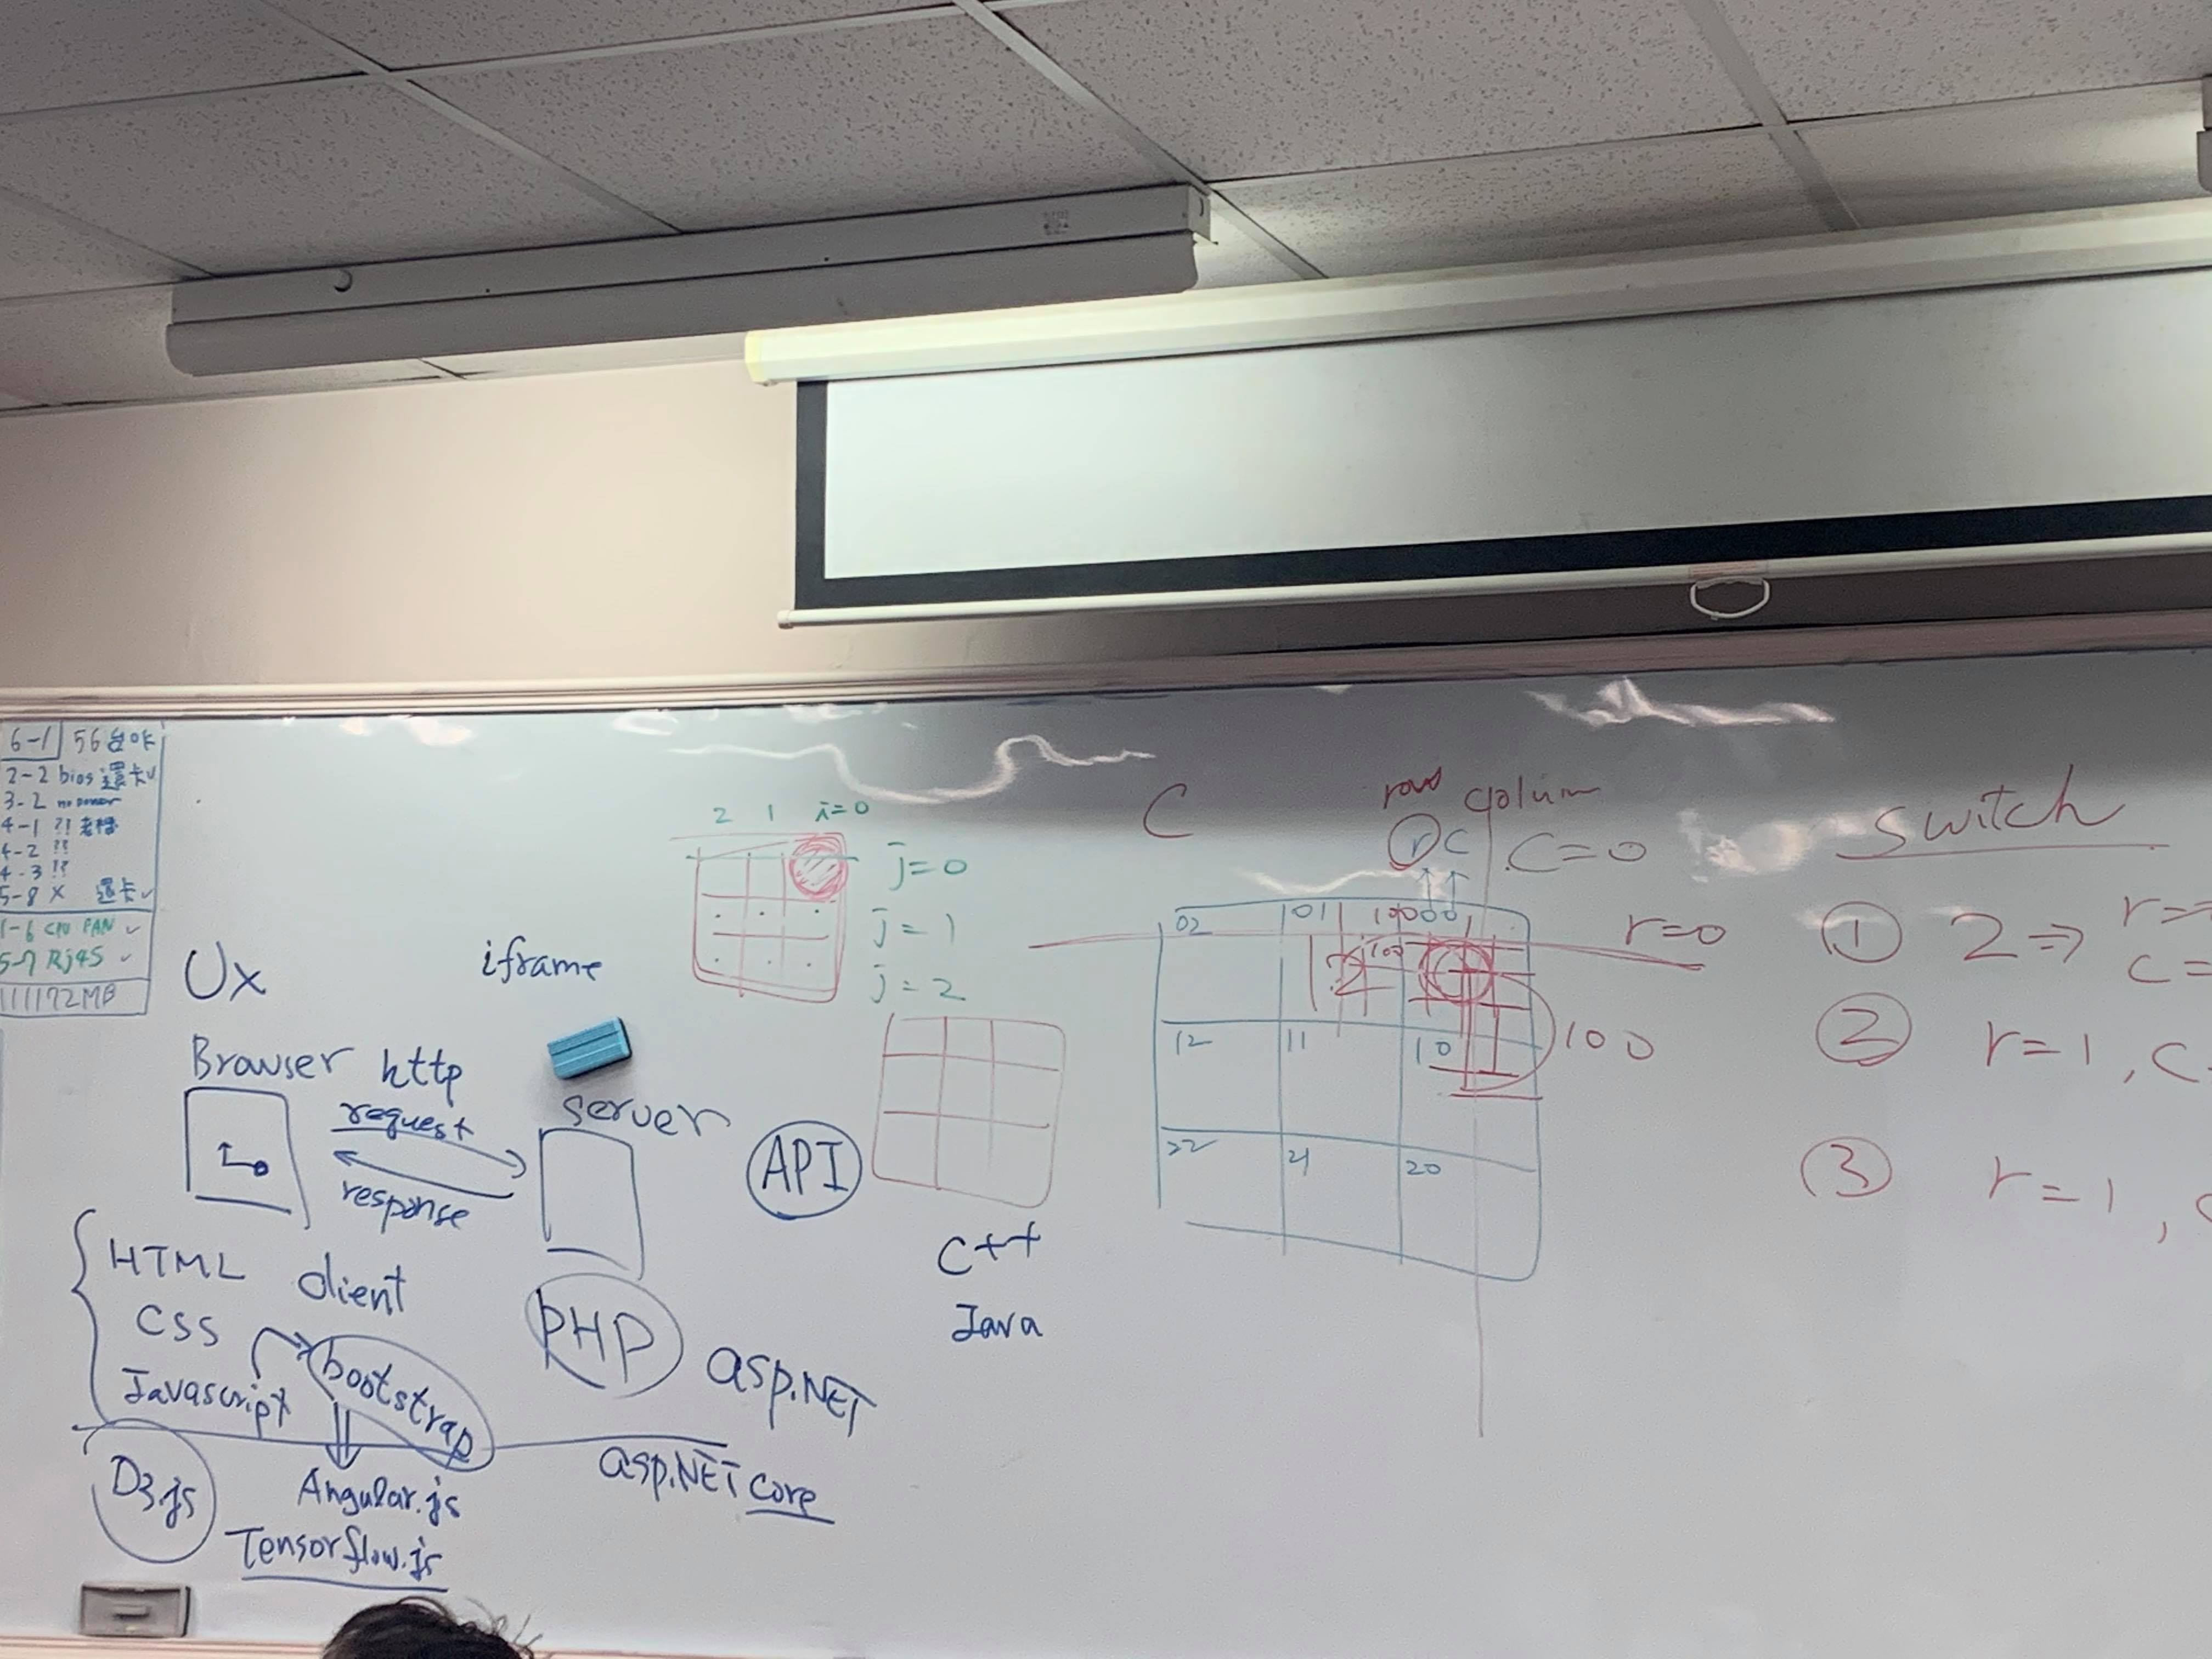 6-1 56台
2-2 bios 還卡✓
3-2 no power
4-1 ?!
4-2 !!
4-3 !?
5-8 X 還卡✓
1-6 CPU FAN ✓
5-7 Rj45 ✓
111172MB
UX
iframe
Browser http
request
response
server
API
HTML client
CSS
Javascript
bootstrap
PHP
asp.NET
D3.js
Angular.js
asp.NET core
Tensorflow.js
2 1 i=0
j=0
j=1
j=2
C++
Java
C
row column
r c C=0
02 01 00
r=0
100
100
12 11 10
100
22 21 20
switch
① 2 ⇒ r=
c=
② r=1, C
③ r=1,